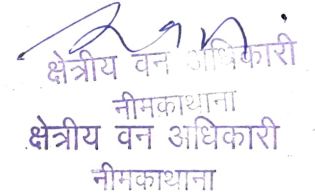 क्षेत्रीय वन अधिकारी
नीमकाथाना
क्षेत्रीय वन अधिकारी
नीमकाथाना